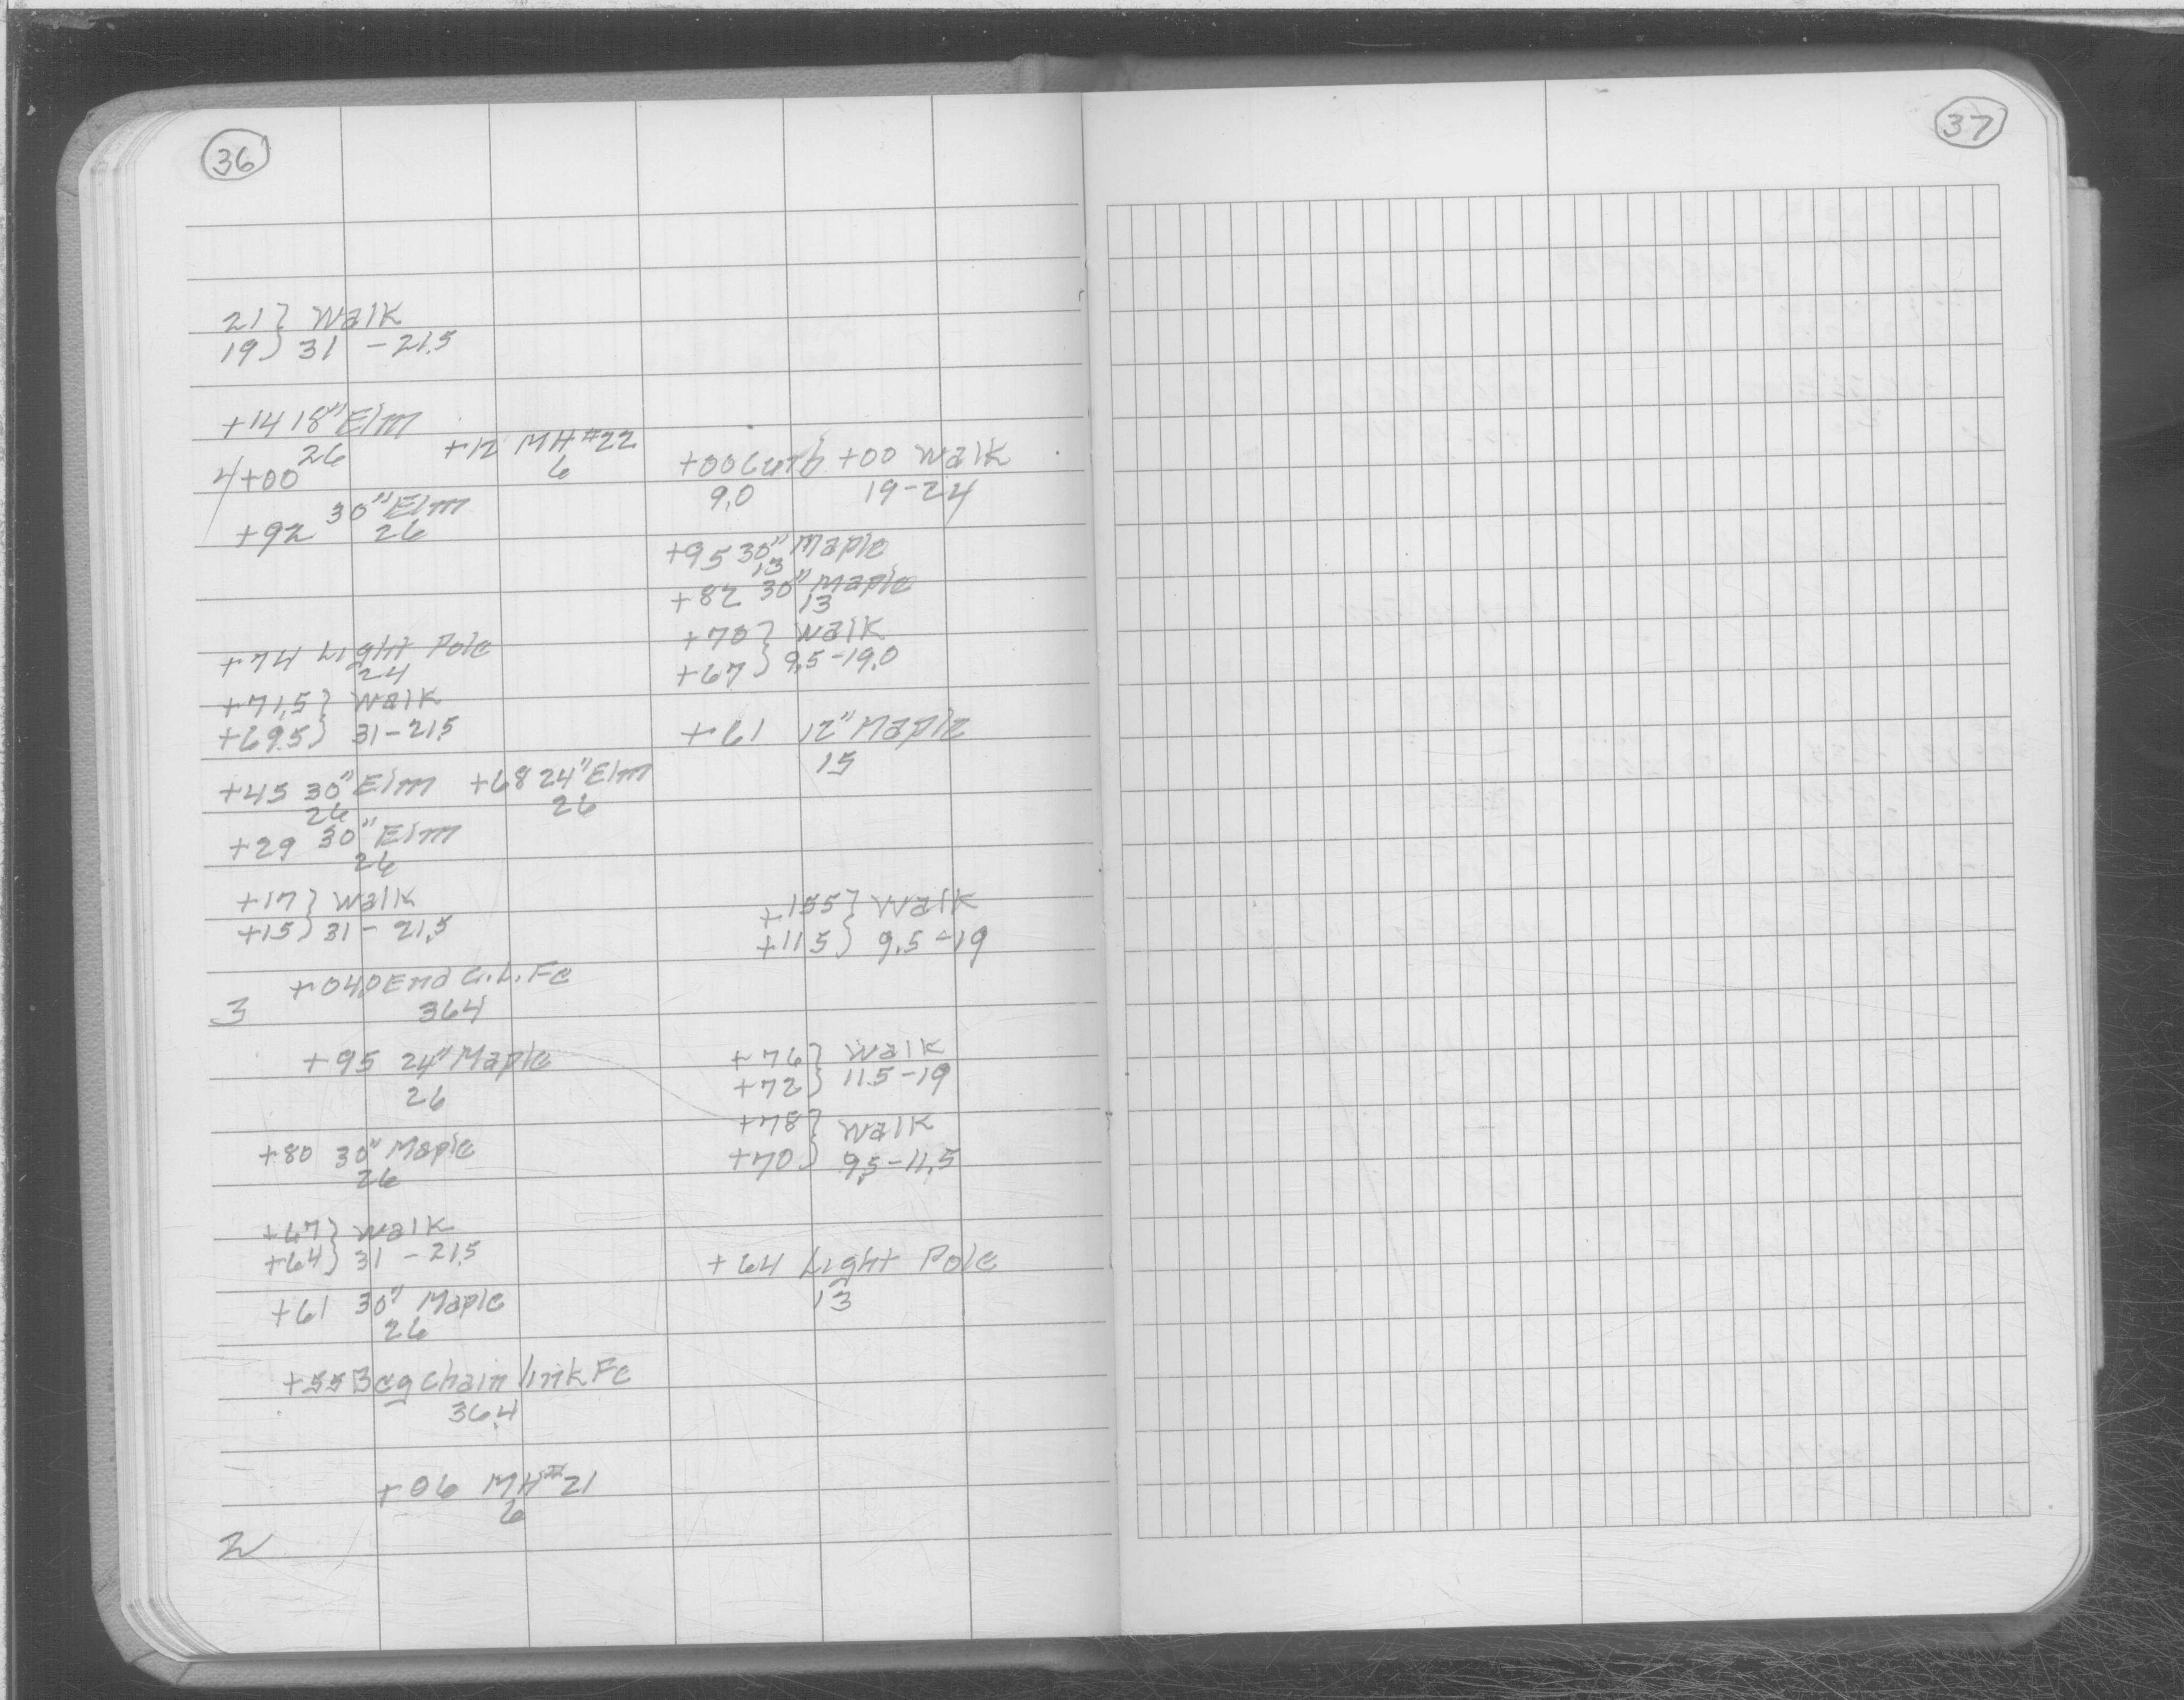 36
37
21 } Walk
19 } 31 - 21.5
+14 18" Elm
26
+12 MH #22
6
+00 Curb +00 Walk
9.0 19-24
4+00
+92 30" Elm
26
+95 30" Maple
13
+82 30" Maple
13
+74 Light Pole
24
+70 } Walk
+67 } 9.5-19.0
+71.5 } Walk
+69.5 } 31-21.5
+61 12" Maple
15
+45 30" Elm +68 24" Elm
26 26
+29 30" Elm
26
+17 } Walk
+15 } 31 - 21.5
+155 } Walk
+115 } 9.5-19
+04.0 End C.L. Fe
364
3
+95 24" Maple
26
+76 } Walk
+72 } 11.5-19
+80 30" Maple
26
+78 } Walk
+70 } 9.5-11.5
+67 } Walk
+64 } 31 - 21.5
+64 Light Pole
13
+61 30" Maple
26
+55 Beg chain link Fe
36.4
+06 MH #21
6
2